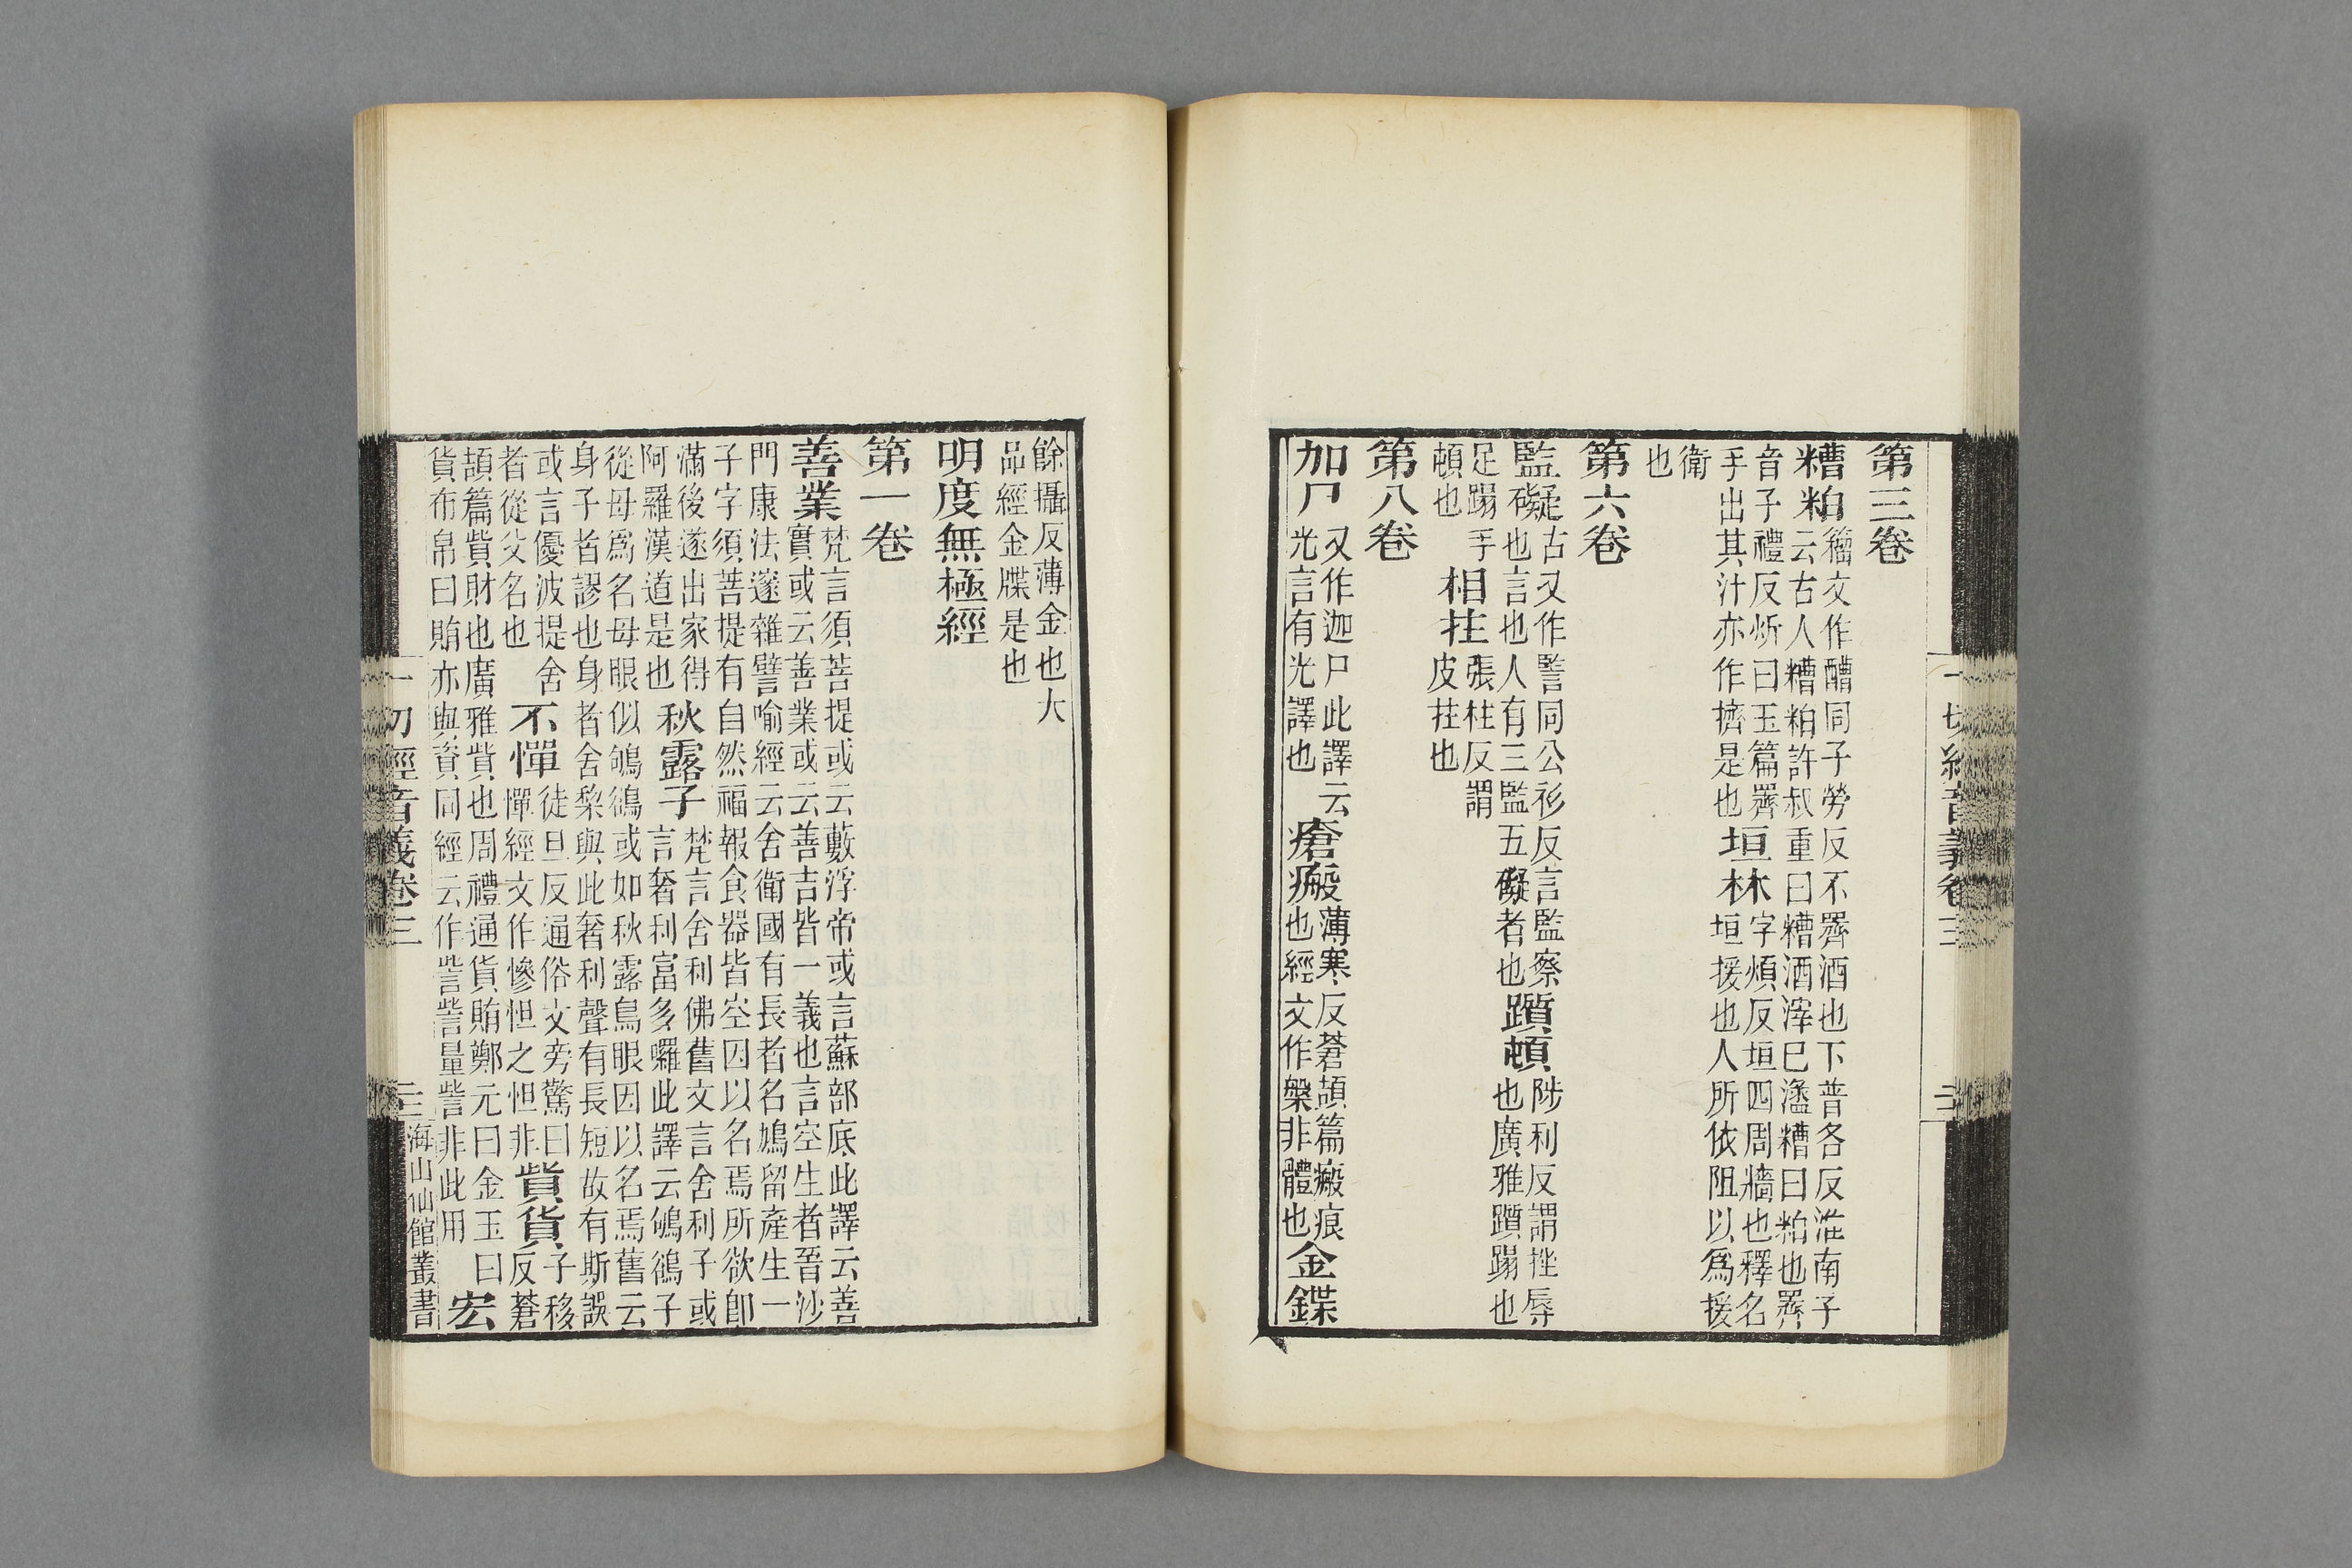 第三卷
糟粕籀文作醩同子勞反不䍤酒也下普各反淮南子
云古人糟粕許叔重曰糟酒滓巳㵒糟曰粕也䍤
音子禮反炘曰玉篇䍤垣林字煩反垣四周牆也釋名
手出其汁亦作擠是也垣援也人所依阻以爲援
衛
也
第六卷
監礙古又作譥同公衫反言監察躓頓陟利反謂挫辱
也言也人有三監五礙者也也廣雅躓蹋也
足蹋手相拄張柱反謂
頓也皮拄也
第八卷
加尸又作迦尸此譯云瘡瘢薄寒反蒼頡篇瘢痕金鍱
光言有光譯也也經文作槃非體也
一切經音義卷三
二
餘攝反薄金也大
品經金牒是也
明度無極經
第一卷
善業梵言須菩提或云藪浮帝或言蘇部底此譯云善
實或云善業或云善吉皆一義也言空生者晉沙
門康法邃雜譬喻經云舍衛國有長者名鳩留產生一
子字須菩提有自然福報食器皆空因以名焉所欲卽
滿後遂出家得秋露子梵言舍利佛舊文言舍利子或
阿羅漢道是也言奢利富多囉此譯云鴝鵒子
從母爲名母眼似鴝鵒或如秋露鳥眼因以名焉舊云
身子者謬也身者舍棃與此奢利聲有長短故有斯誤
或言優波提舍不憚徒旦反通俗文旁驚曰貲貨子移
者從父名也憚經文作慘怛之怛非反蒼
頡篇貲財也廣雅貲也周禮通貨賄鄭元曰金玉曰宏
貨布帛曰賄亦與資同經云作訾訾量訾非此用
一切經音義卷三
三
海山仙館叢書